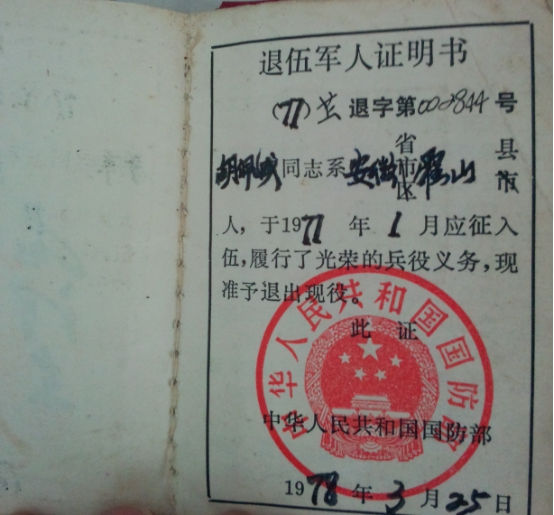 退伍军人证明书
(77)字退字第002844号
同志系安徽省市区霍山县市
人，于1971年1月应征入
伍，履行了光荣的兵役义务，现
准予退出现役。
此证
中华人民共和国国防部
中华人民共和国国防部
1978年3月25日